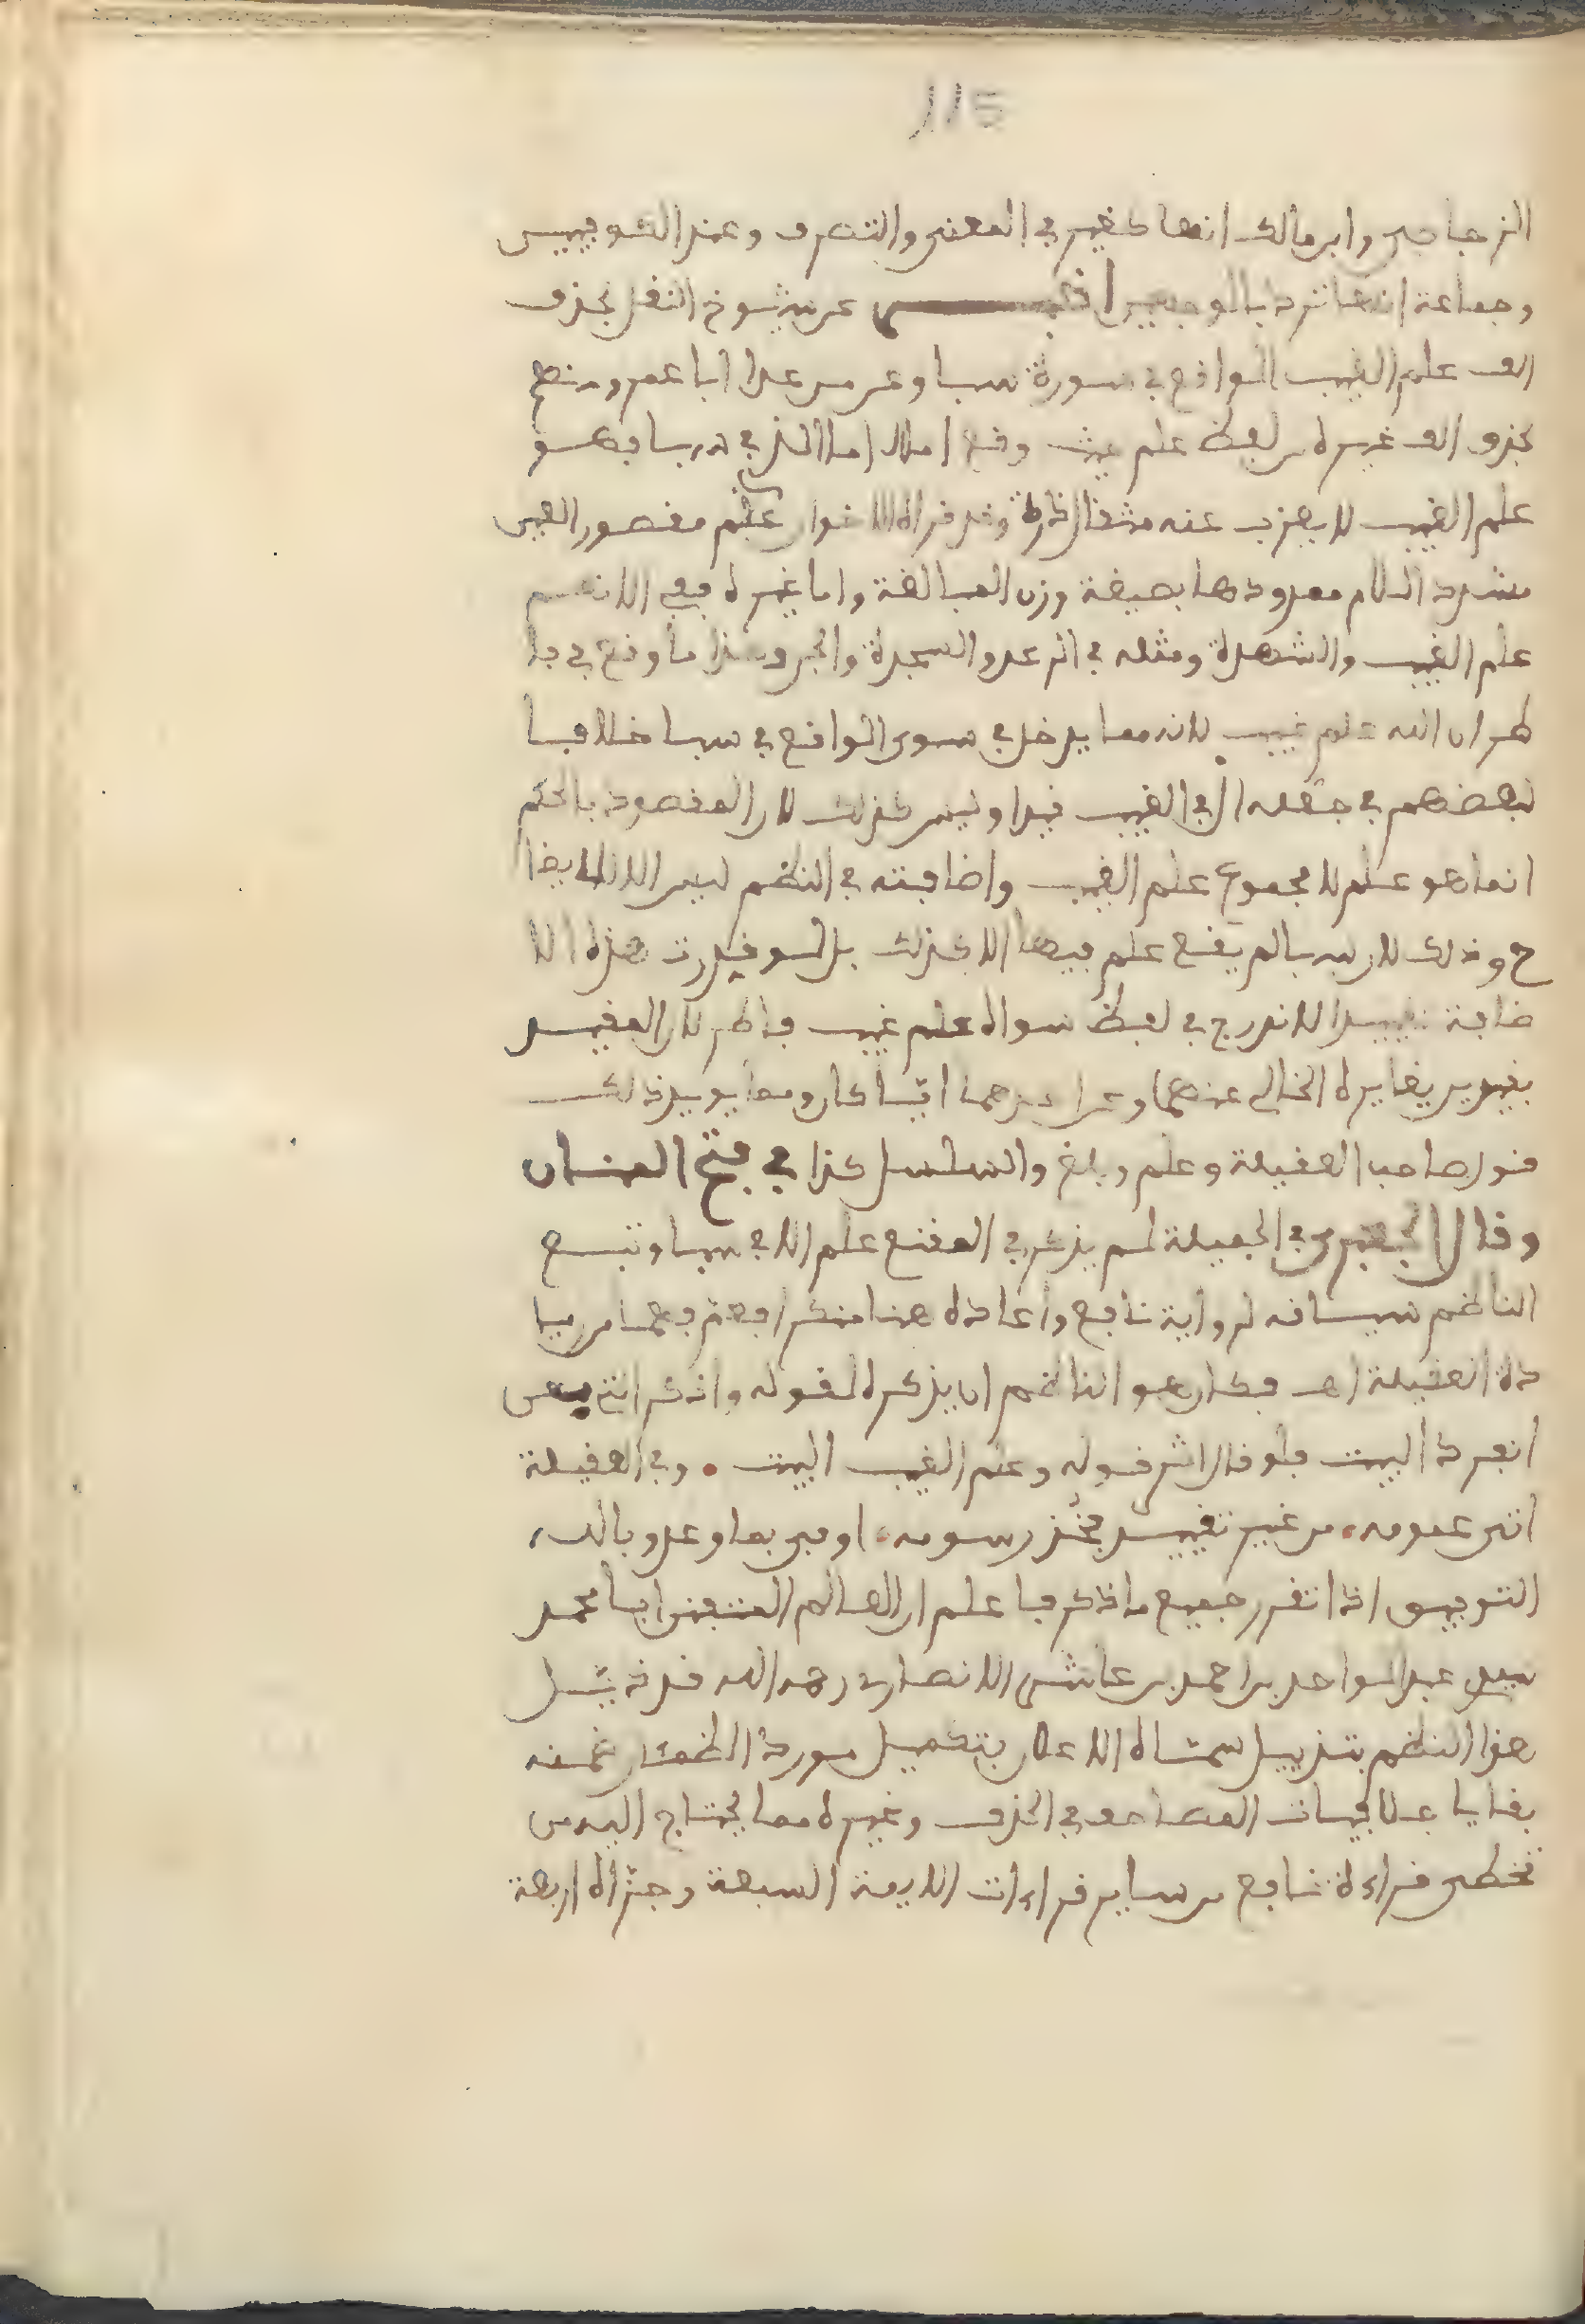 115
الزجاجي وابن مالك انها كغير في المعنى والتصرف وعند الكوفيين
وجماعة انها ترد بالوجهين اخبر عن شيوخ النقل بحذف
الف علم الغيب الواقع في سورة سبا وعن من عدا ابا عمرو منهم
بحذف الف غيره من لفظ علم حيث وقع اما الذي في سبا فهو
علم الغيب لا يعزب عنه مثقال ذرة وقد قراه الاخوان علم مقصور العين
مشدد اللام ممدودها بصيغة وزن المبالغة واما غيره ففي الانعم
علم الغيب والشهدة ومثله في الرعد والسجدة والحجر وهذا ما وقع في فا
طر ان الله علم غيب لانه مما يدخل في سوى الواقع في سبا خلافا
لبعضهم في جعله ال في الغيب قيدا وليس كذلك لان المقصود بالحكم
انما هو علم لا مجموع علم الغيب واضافته في النظم لبيان الايضا
ح وذلك لان سبا لم يقع علم فيها الا كذلك بل لو قدرت هذه الا
ضافة تقييدا لاندرج في لفظ سواه علم غيب فاطر لان المقيد
بقيدين يغايره الخالي عنهما وعن احدهما ايا كان ومما يويد ذلك
قول صاحب العقيلة وعلم وبلغ والسلسل كذا في فتح المنان
وقال الجعبري في الجميلة لم يذكر في المقنع علم الا في سبا وتبع
الناظم سياقه لرواية نافع واعاده هنا منكرا فعم فهما من زيا
دة العقيلة اهـ فكان هو الناظم ان يذكره لقوله واذكر التي بهن
انفردا البيت فلو قال اثر قوله وعلم الغيب البيت • وفي العقيلة
اتى عمومه • من غير تقييد فخذ رسومه • اوفى بما وعد وبالله
التوفيق اذا تقرر جميع ما ذكر فاعلم ان العالم المتقن ابا محمد
سيدي عبد الواحد بن احمد بن عاشر الانصاري رحمه الله قد ذيل
هذا النظم بتذييل سماه الاعلان بتكميل مورد الظمئان ضمنه
بقايا خلافيات المصاحف في الحذف وغيره مما يحتاج اليه من
تخطى قراءة نافع من ساير قراءات الايمة السبعة وجزاه اربعة